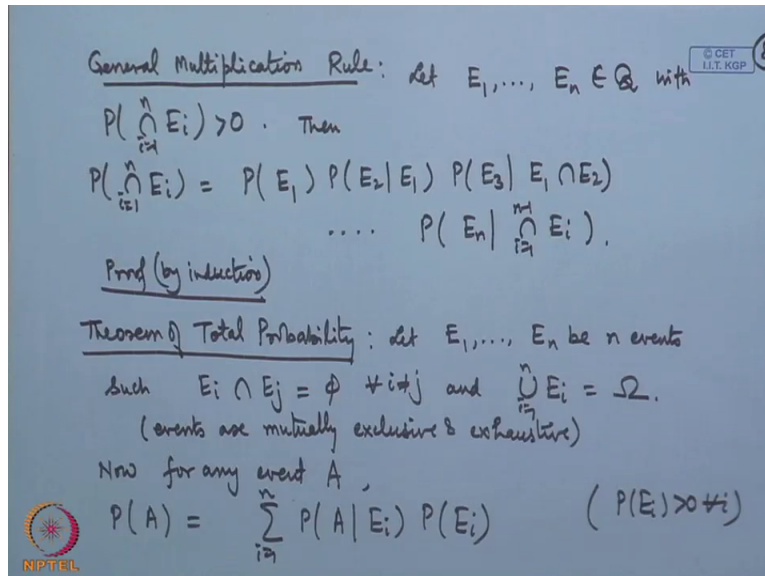 General Multiplication Rule: Let E₁, ..., Eₙ ∈ Q with
© CET
I.I.T. KGP
P(⋂ᵢ₌₁ⁿ Eᵢ) > 0 . Then
P(⋂ᵢ₌₁ⁿ Eᵢ) = P(E₁) P(E₂|E₁) P(E₃| E₁ ∩ E₂)
.... P(Eₙ| ⋂ᵢ₌₁ⁿ⁻¹ Eᵢ).
Proof (by induction)
Theorem of Total Probability: Let E₁, ..., Eₙ be n events
such Eᵢ ∩ Eⱼ = ϕ ∀ i≠j and ⋃ᵢ₌₁ⁿ Eᵢ = Ω.
(events are mutually exclusive & exhaustive)
Now for any event A,
P(A) = ∑ᵢ₌₁ⁿ P(A|Eᵢ) P(Eᵢ) (P(Eᵢ)>0 ∀ i)
NPTEL